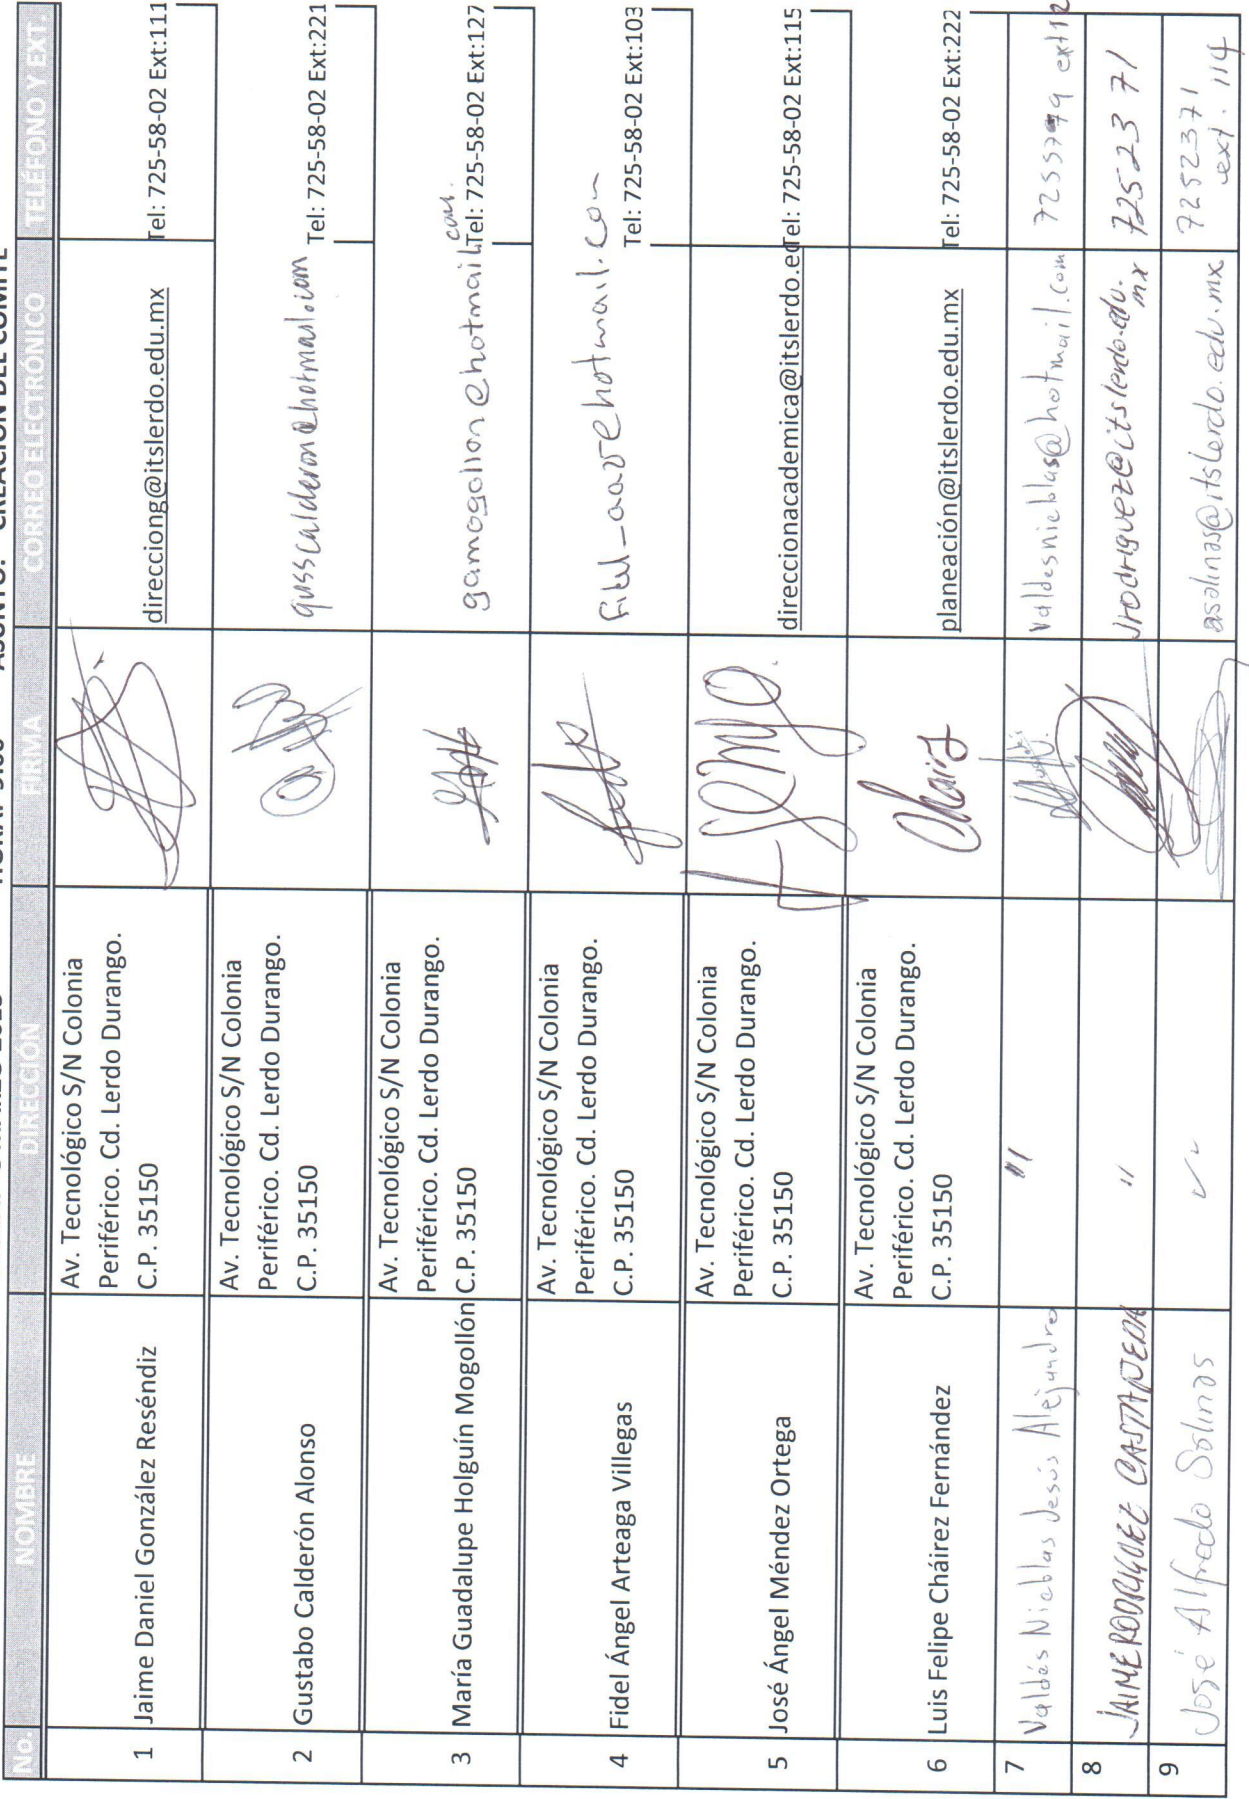 ASUNTO: CREACIÓN DEL COMITÉ
No. NOMBRE DIRECCIÓN FIRMA CORREO ELECTRÓNICO TELÉFONO Y EXT.
1 Jaime Daniel González Reséndiz
Av. Tecnológico S/N Colonia
Periférico. Cd. Lerdo Durango.
C.P. 35150
direcciong@itslerdo.edu.mx
Tel: 725-58-02 Ext:111
2 Gustabo Calderón Alonso
Av. Tecnológico S/N Colonia
Periférico. Cd. Lerdo Durango.
C.P. 35150
gusscalderon@hotmail.com
Tel: 725-58-02 Ext:221
3 María Guadalupe Holguín Mogollón
Av. Tecnológico S/N Colonia
Periférico. Cd. Lerdo Durango.
C.P. 35150
gamogollon@hotmail.com.
Tel: 725-58-02 Ext:127
4 Fidel Ángel Arteaga Villegas
Av. Tecnológico S/N Colonia
Periférico. Cd. Lerdo Durango.
C.P. 35150
Tel: 725-58-02 Ext:103
5 José Ángel Méndez Ortega
Av. Tecnológico S/N Colonia
Periférico. Cd. Lerdo Durango.
C.P. 35150
direccionacademica@itslerdo.ed
Tel: 725-58-02 Ext:115
6 Luis Felipe Cháirez Fernández
Av. Tecnológico S/N Colonia
Periférico. Cd. Lerdo Durango.
C.P. 35150
Chairez
planeación@itslerdo.edu.mx
Tel: 725-58-02 Ext:222
7 Valdés Nieblas Jesús Alejandro
"
valdesnieblas@hotmail.com
8 JAIME RODRIGUEZ CASTAÑEDA
"
jrodriguez@itslerdo.edu.
mx
7252371
9 José Alfredo Solinas
asalinas@itslerdo.edu.mx
7252371
ext. 114